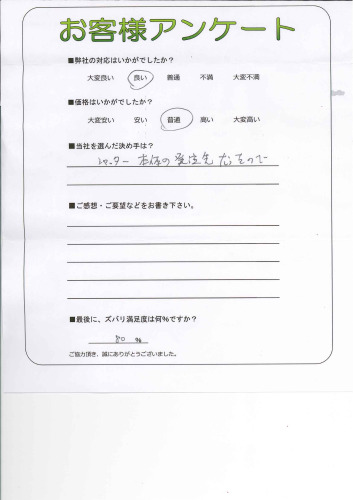 お客様アンケート
■弊社の対応はいかがでしたか?
大変良い 良い 普通 不満 大変不満
■価格はいかがでしたか?
大変安い 安い 普通 高い 大変高い
■当社を選んだ決め手は?
シャッター本体の発注先だったので
■ご感想・ご要望などをお書き下さい。
■最後に、ズバリ満足度は何%ですか?
80 %
ご協力頂き、誠にありがとうございました。